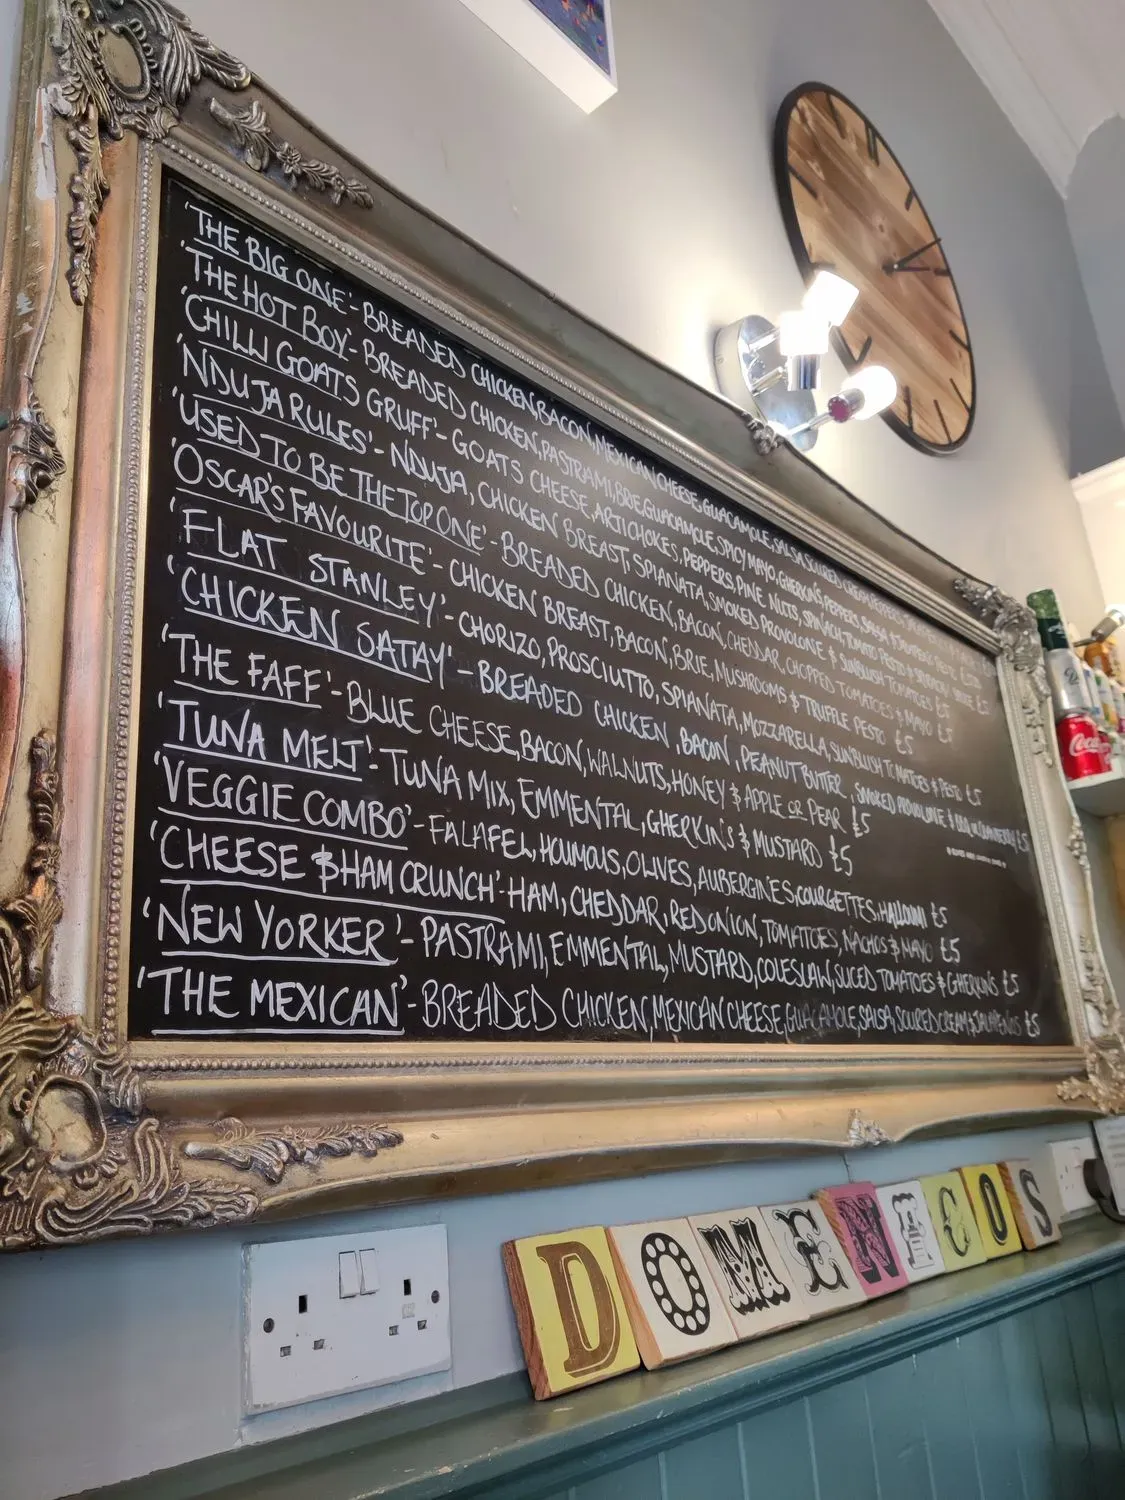 'THE BIG ONE'- BREADED CHICKEN, BACON, MEXICAN CHEESE, GUACAMOLE, SALSA, SOURED CREAM,
'THE HOT BOY'- BREADED CHICKEN, PASTRAMI, BRIE, GUACAMOLE, SPICY MAYO, GHERKINS, PEPPERS, SALSA &
'CHILLI GOATS GRUFF'- GOATS CHEESE, ARTICHOKES, PEPPERS, PINE NUTS, SPINACH, TOMATO PESTO &
'NDUJA RULES'- NDUJA, CHICKEN BREAST, SPIANATA, SMOKED PROVOLONE & SUNBLUSH TOMATOES £5
'USED TO BE THE TOP ONE'- BREADED CHICKEN, BACON, CHEDDAR, CHOPPED TOMATOES & MAYO £5
'OSCAR'S FAVOURITE'- CHICKEN BREAST, BACON, BRIE, MUSHROOMS & TRUFFLE PESTO £5
'FLAT STANLEY'- CHORIZO, PROSCIUTTO, SPIANATA, MOZZARELLA, SUNBLUSH TOMATOES & PESTO £5
'CHICKEN SATAY'- BREADED CHICKEN, BACON, PEANUT BUTTER, SMOKED PROVOLONE & £5
'THE FAFF'- BLUE CHEESE, BACON, WALNUTS, HONEY & APPLE OR PEAR £5
'TUNA MELT'- TUNA MIX, EMMENTAL, GHERKINS & MUSTARD £5
'VEGGIE COMBO'- FALAFEL, HOUMOUS, OLIVES, AUBERGINES, COURGETTES, HALLOUMI £5
'CHEESE & HAM CRUNCH'- HAM, CHEDDAR, RED ONION, TOMATOES, NACHOS & MAYO £5
'NEW YORKER'- PASTRAMI, EMMENTAL, MUSTARD, COLESLAW, SLICED TOMATOES & GHERKINS £5
'THE MEXICAN'- BREADED CHICKEN, MEXICAN CHEESE, GUACAMOLE, SALSA, SOURED CREAM & JALAPENOS £5
DOMENECOS